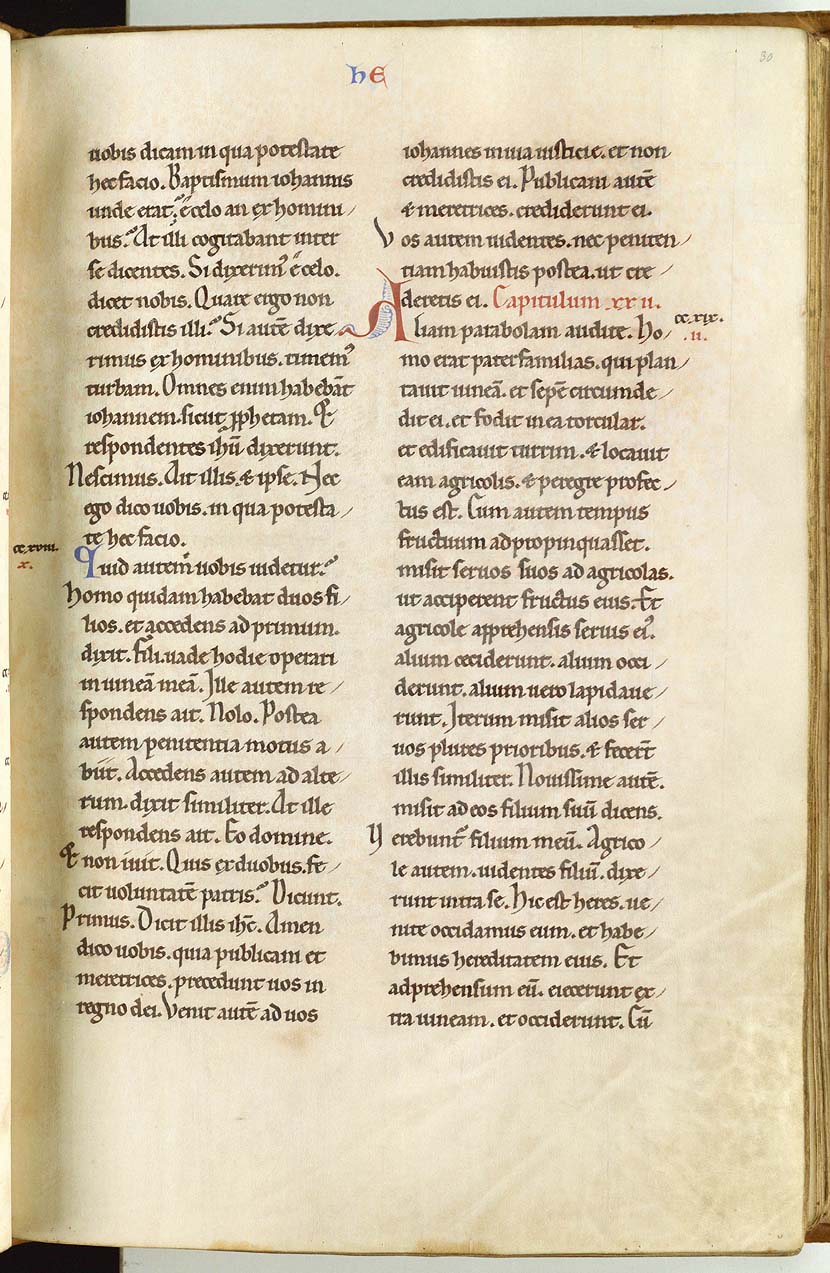 hE
30
uobis dicam in qua potestate
hec facio. Baptismum iohannis
unde erat. ē celo an ex homini/
bus. At illi cogitabant inter
se dicentes. Si dixerim' ē celo.
dicet nobis. Quare ergo non
credidistis illi. Si autē dixe
rimus ex hominibus. timem'
turbam. Omnes enim habebāt
iohannem. sicut pphetam. Et
respondentes ihū dixerunt.
Nescimus. Ait illis. & ipse. Nec
ego dico uobis. in qua potesta/
te hec facio.
cc.xviii.
x.
Quid autem uobis uidetur.
homo quidam habebat duos fi/
lios. et accedens ad primum.
dixit. Fili. uade hodie operari
in uineā meā. Ille autem re/
spondens ait. Nolo. Postea
autem penitentia motus a/
biit. Accedens autem ad alte/
rum. dixit similiter. At ille
respondens ait. Eo domine.
Et non iuit. Quis ex duobus. fe/
cit uoluntatē patris. Dicunt.
Primus. Dicit illis ihc̄. Amen
dico uobis. quia publicani et
meretrices. precedunt uos in
regno dei. Venit autē ad uos
iohannes in uia iusticie. et non
credidistis ei. Publicani autē
& meretrices. crediderunt ei.
Vos autem uidentes. nec peniten/
tiam habuistis postea. ut cre/
deretis ei. Capitulum xx ii.
Aliam parabolam audite. Ho/
cc.xix.
.ii.
mo erat paterfamilias. qui plan/
tauit uineā. et sepē circumde/
dit ei. et fodit in ea torcular.
et edificauit turrim. & locauit
eam agricolis. & peregre profec/
tus est. Cum autem tempus
fructuum adpropinquasset.
misit seruos suos ad agricolas.
ut acciperent fructus eius. Et
agricole apprehensis seruis ei'.
alium ceciderunt. alium occi/
derunt. alium uero lapidaue/
runt. Iterum misit alios ser/
uos plures prioribus. & fecert̄
illis similiter. Nouissime autē.
misit ad eos filium suū dicens.
Verebunt' filium meū. Agrico/
le autem. uidentes filiū. dixe/
runt intra se. Hic est heres. ue/
nite occidamus eum. et habe/
bimus hereditatem eius. Et
adprehensum eū. eiecerunt ex/
tra uineam. et occiderunt. Cū